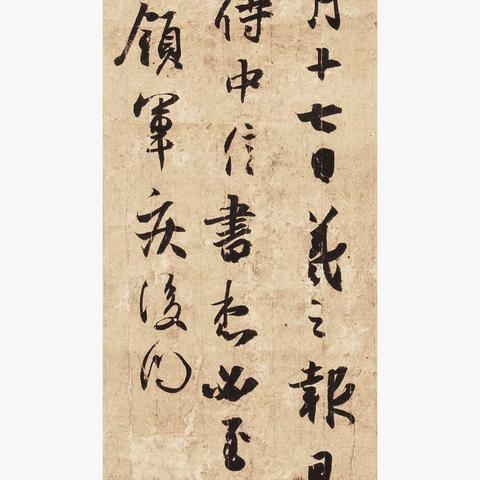 月十七日羲之報且
侍中信書想必至
領軍疾後問